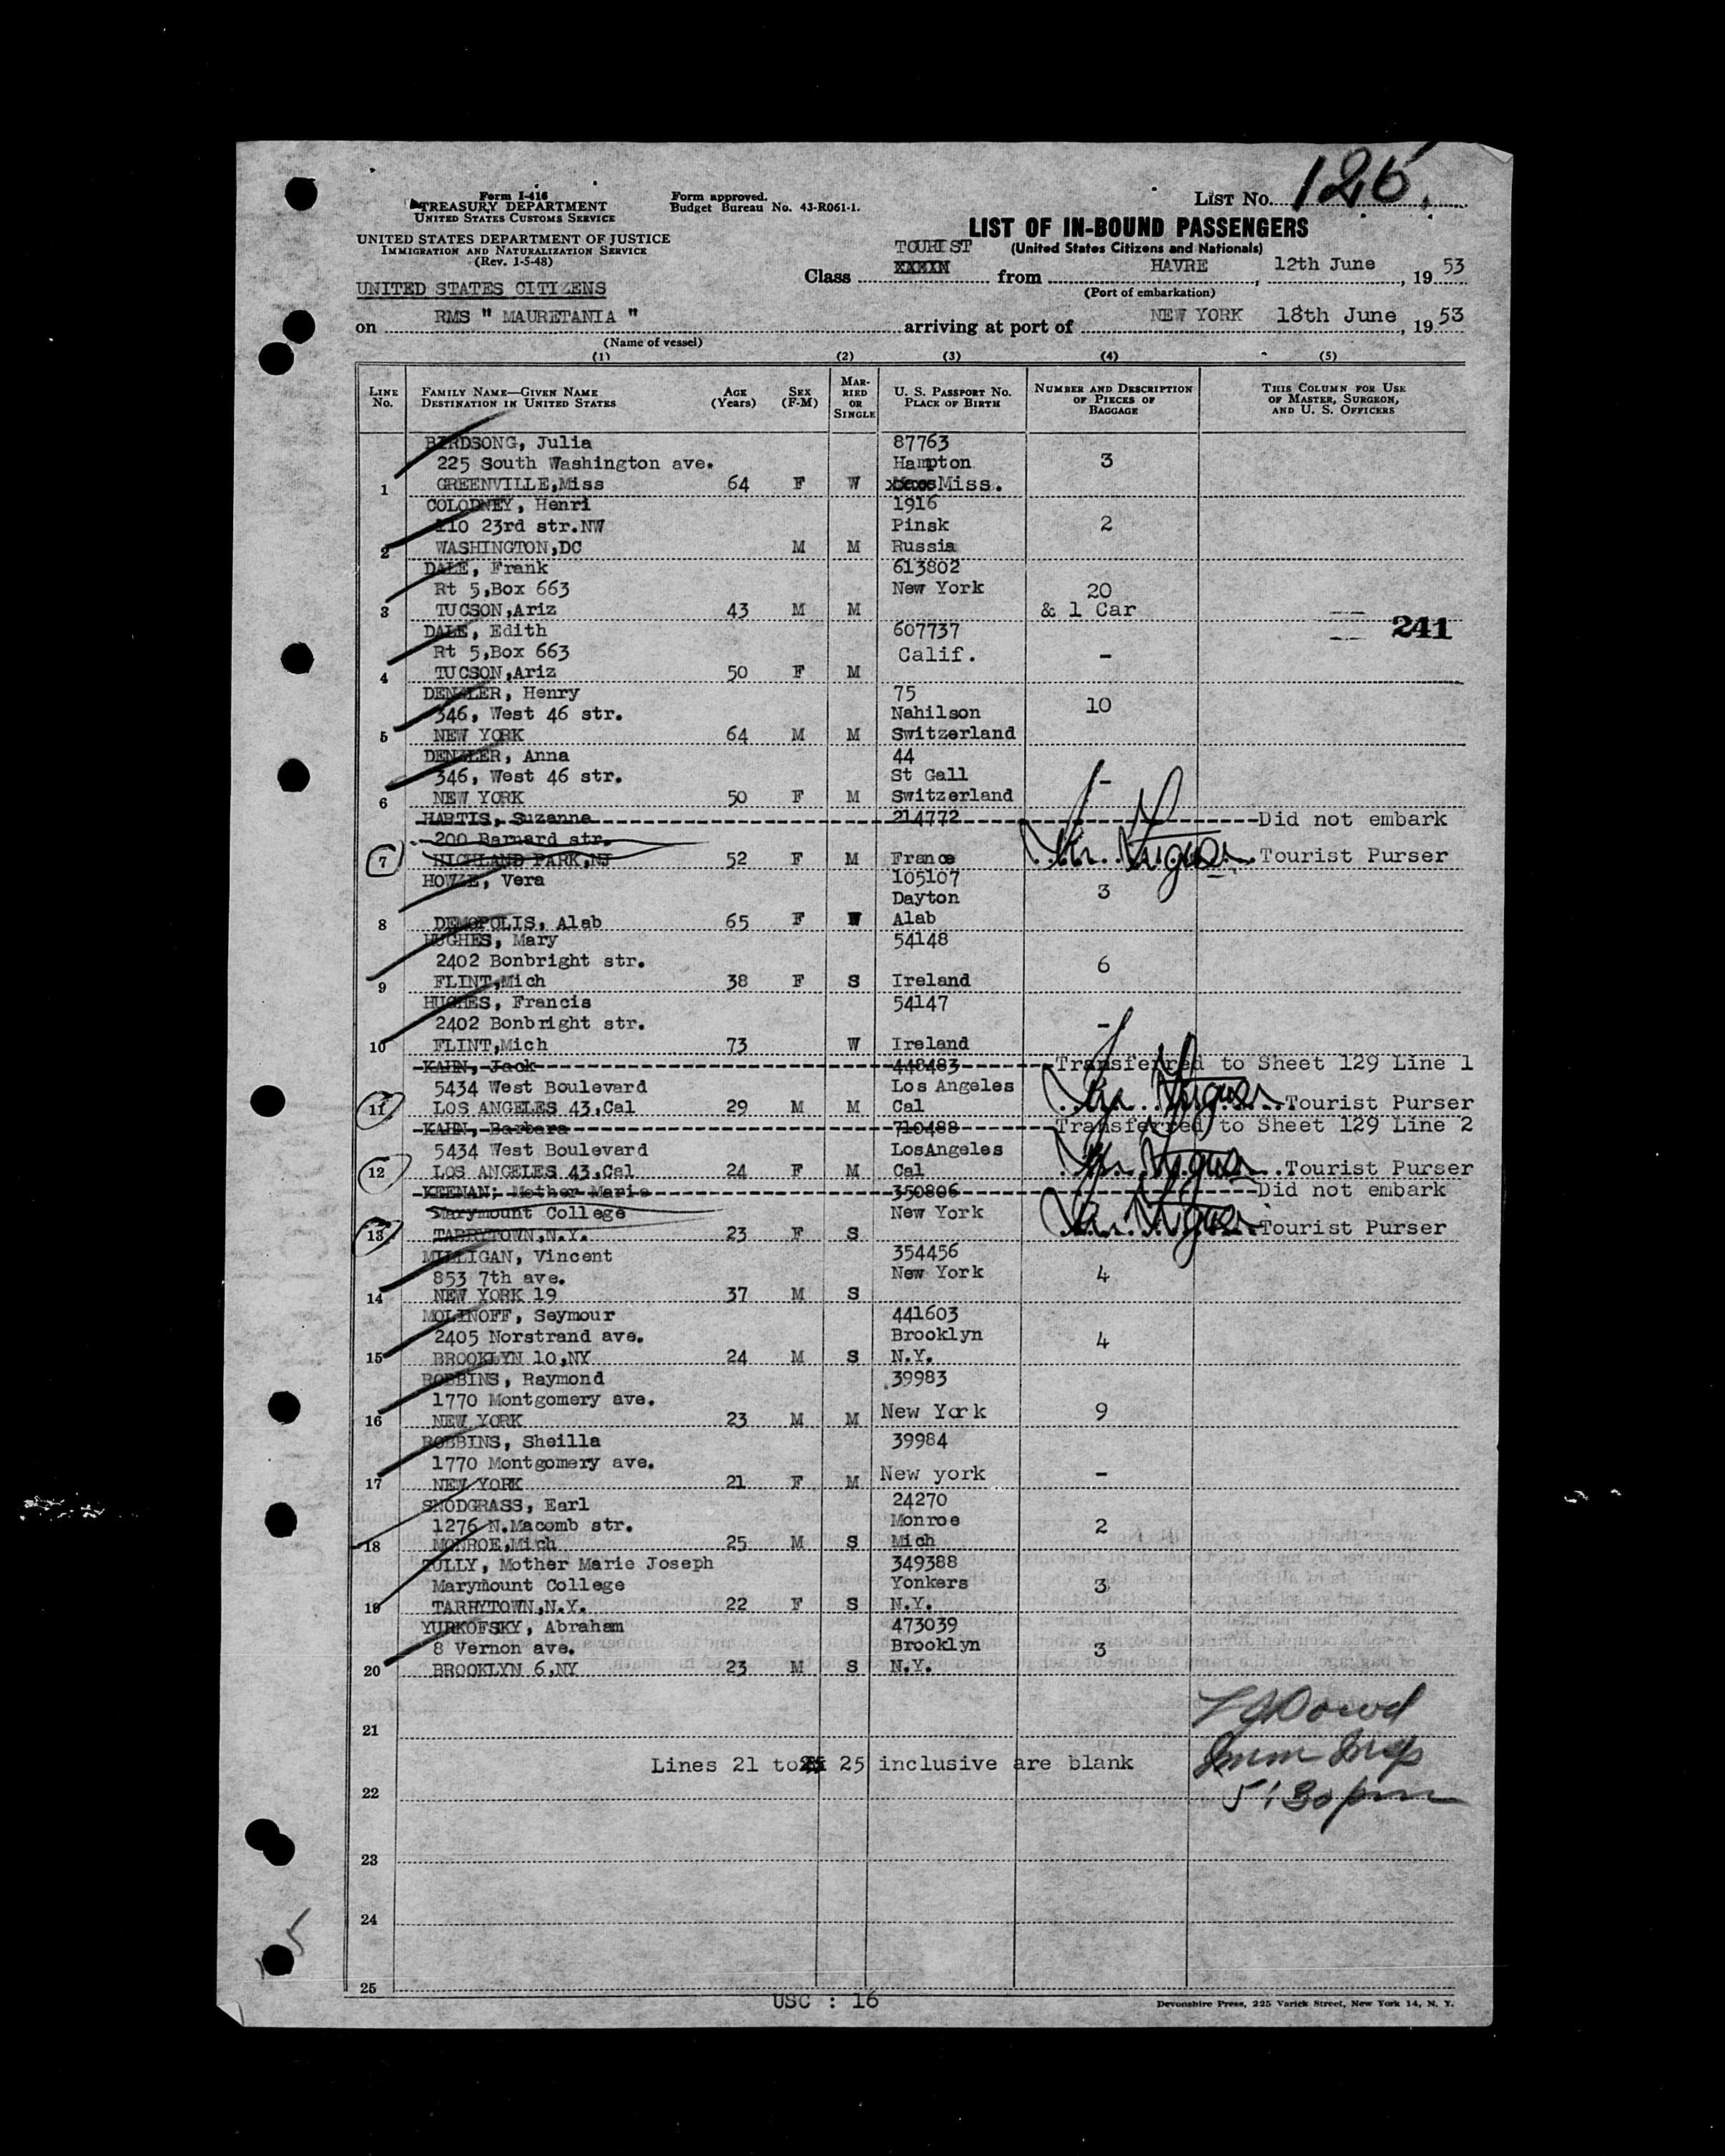 Form I-416
TREASURY DEPARTMENT
UNITED STATES CUSTOMS SERVICE
UNITED STATES DEPARTMENT OF JUSTICE
IMMIGRATION AND NATURALIZATION SERVICE
(Rev. 1-5-48)
Form approved.
Budget Bureau No. 43-R061-1.
LIST No. 126.
LIST OF IN-BOUND PASSENGERS
(United States Citizens and Nationals)
UNITED STATES CITIZENS
Class TOURIST from HAVRE, 12th June, 1953
(Port of embarkation)
on RMS " MAURETANIA " arriving at port of NEW YORK 18th June, 1953
(Name of vessel)
(1) (2) (3) (4) (5)
LINE No. FAMILY NAME—GIVEN NAME DESTINATION IN UNITED STATES AGE (Years) SEX (F-M) MARRIED OR SINGLE U. S. PASSPORT NO. PLACE OF BIRTH NUMBER AND DESCRIPTION OF PIECES OF BAGGAGE THIS COLUMN FOR USE OF MASTER, SURGEON, AND U. S. OFFICERS
BIRDSONG, Julia 87763
225 South Washington ave. Hampton 3
1 GREENVILLE,Miss 64 F W Miss.
COLODNEY, Henri 1916
110 23rd str.NW Pinsk 2
2 WASHINGTON,DC M M Russia
DALE, Frank 613802
Rt 5,Box 663 New York 20
3 TUCSON,Ariz 43 M M & 1 Car
241
DALE, Edith 607737
Rt 5,Box 663 Calif. -
4 TUCSON,Ariz 50 F M
DENZLER, Henry 75
346, West 46 str. Nahilson 10
5 NEW YORK 64 M M Switzerland
DENZLER, Anna 44
346, West 46 str. St Gall -
6 NEW YORK 50 F M Switzerland
HARTIS, Suzanne 214772 Did not embark
200 Barnard str.
7 HIGHLAND PARK,NJ 52 F M France Tourist Purser
HOWZE, Vera 105107
Dayton 3
8 DEMOPOLIS, Alab 65 F W Alab
HUGHES, Mary 54148
2402 Bonbright str. 6
9 FLINT,Mich 38 F S Ireland
HUGHES, Francis 54147
2402 Bonbright str. -
10 FLINT,Mich 73 W Ireland
KAHN, Jack 448483 Transferred to Sheet 129 Line 1
5434 West Boulevard Los Angeles
11 LOS ANGELES 43,Cal 29 M M Cal Tourist Purser
KAHN, Barbara 710488 Transferred to Sheet 129 Line 2
5434 West Boulevard LosAngeles
12 LOS ANGELES 43,Cal 24 F M Cal Tourist Purser
KEENAN; Mother Marie 350806 Did not embark
Marymount College New York
13 TARRYTOWN,N.Y. 23 F S Tourist Purser
MILLIGAN, Vincent 354456
853 7th ave. New York 4
14 NEW YORK 19 37 M S
MOLINOFF, Seymour 441603
2405 Norstrand ave. Brooklyn 4
15 BROOKLYN 10,NY 24 M S N.Y.
ROBBINS, Raymond 39983
1770 Montgomery ave.
16 NEW YORK 23 M M New York 9
ROBBINS, Sheilla 39984
1770 Montgomery ave.
17 NEW YORK 21 F M New york -
SNODGRASS, Earl 24270
1276 N.Macomb str. Monroe 2
18 MONROE,Mich 25 M S Mich
TULLY, Mother Marie Joseph 349388
Marymount College Yonkers 3
19 TARRYTOWN,N.Y. 22 F S N.Y.
YURKOFSKY, Abraham 473039
8 Vernon ave. Brooklyn 3
20 BROOKLYN 6,NY 23 M S N.Y.
21
Lines 21 to 25 inclusive are blank
5:30 pm
22
23
24
25
USC : 16
Devonshire Press, 225 Varick Street, New York 14, N. Y.